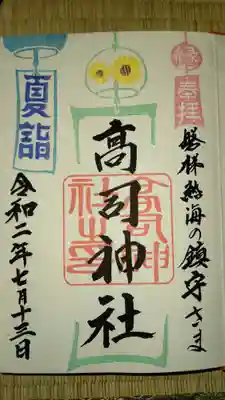 奉拝
磐梯熱海の鎮守さま
高司神社
高司神社之印
夏詣
令和二年七月十三日